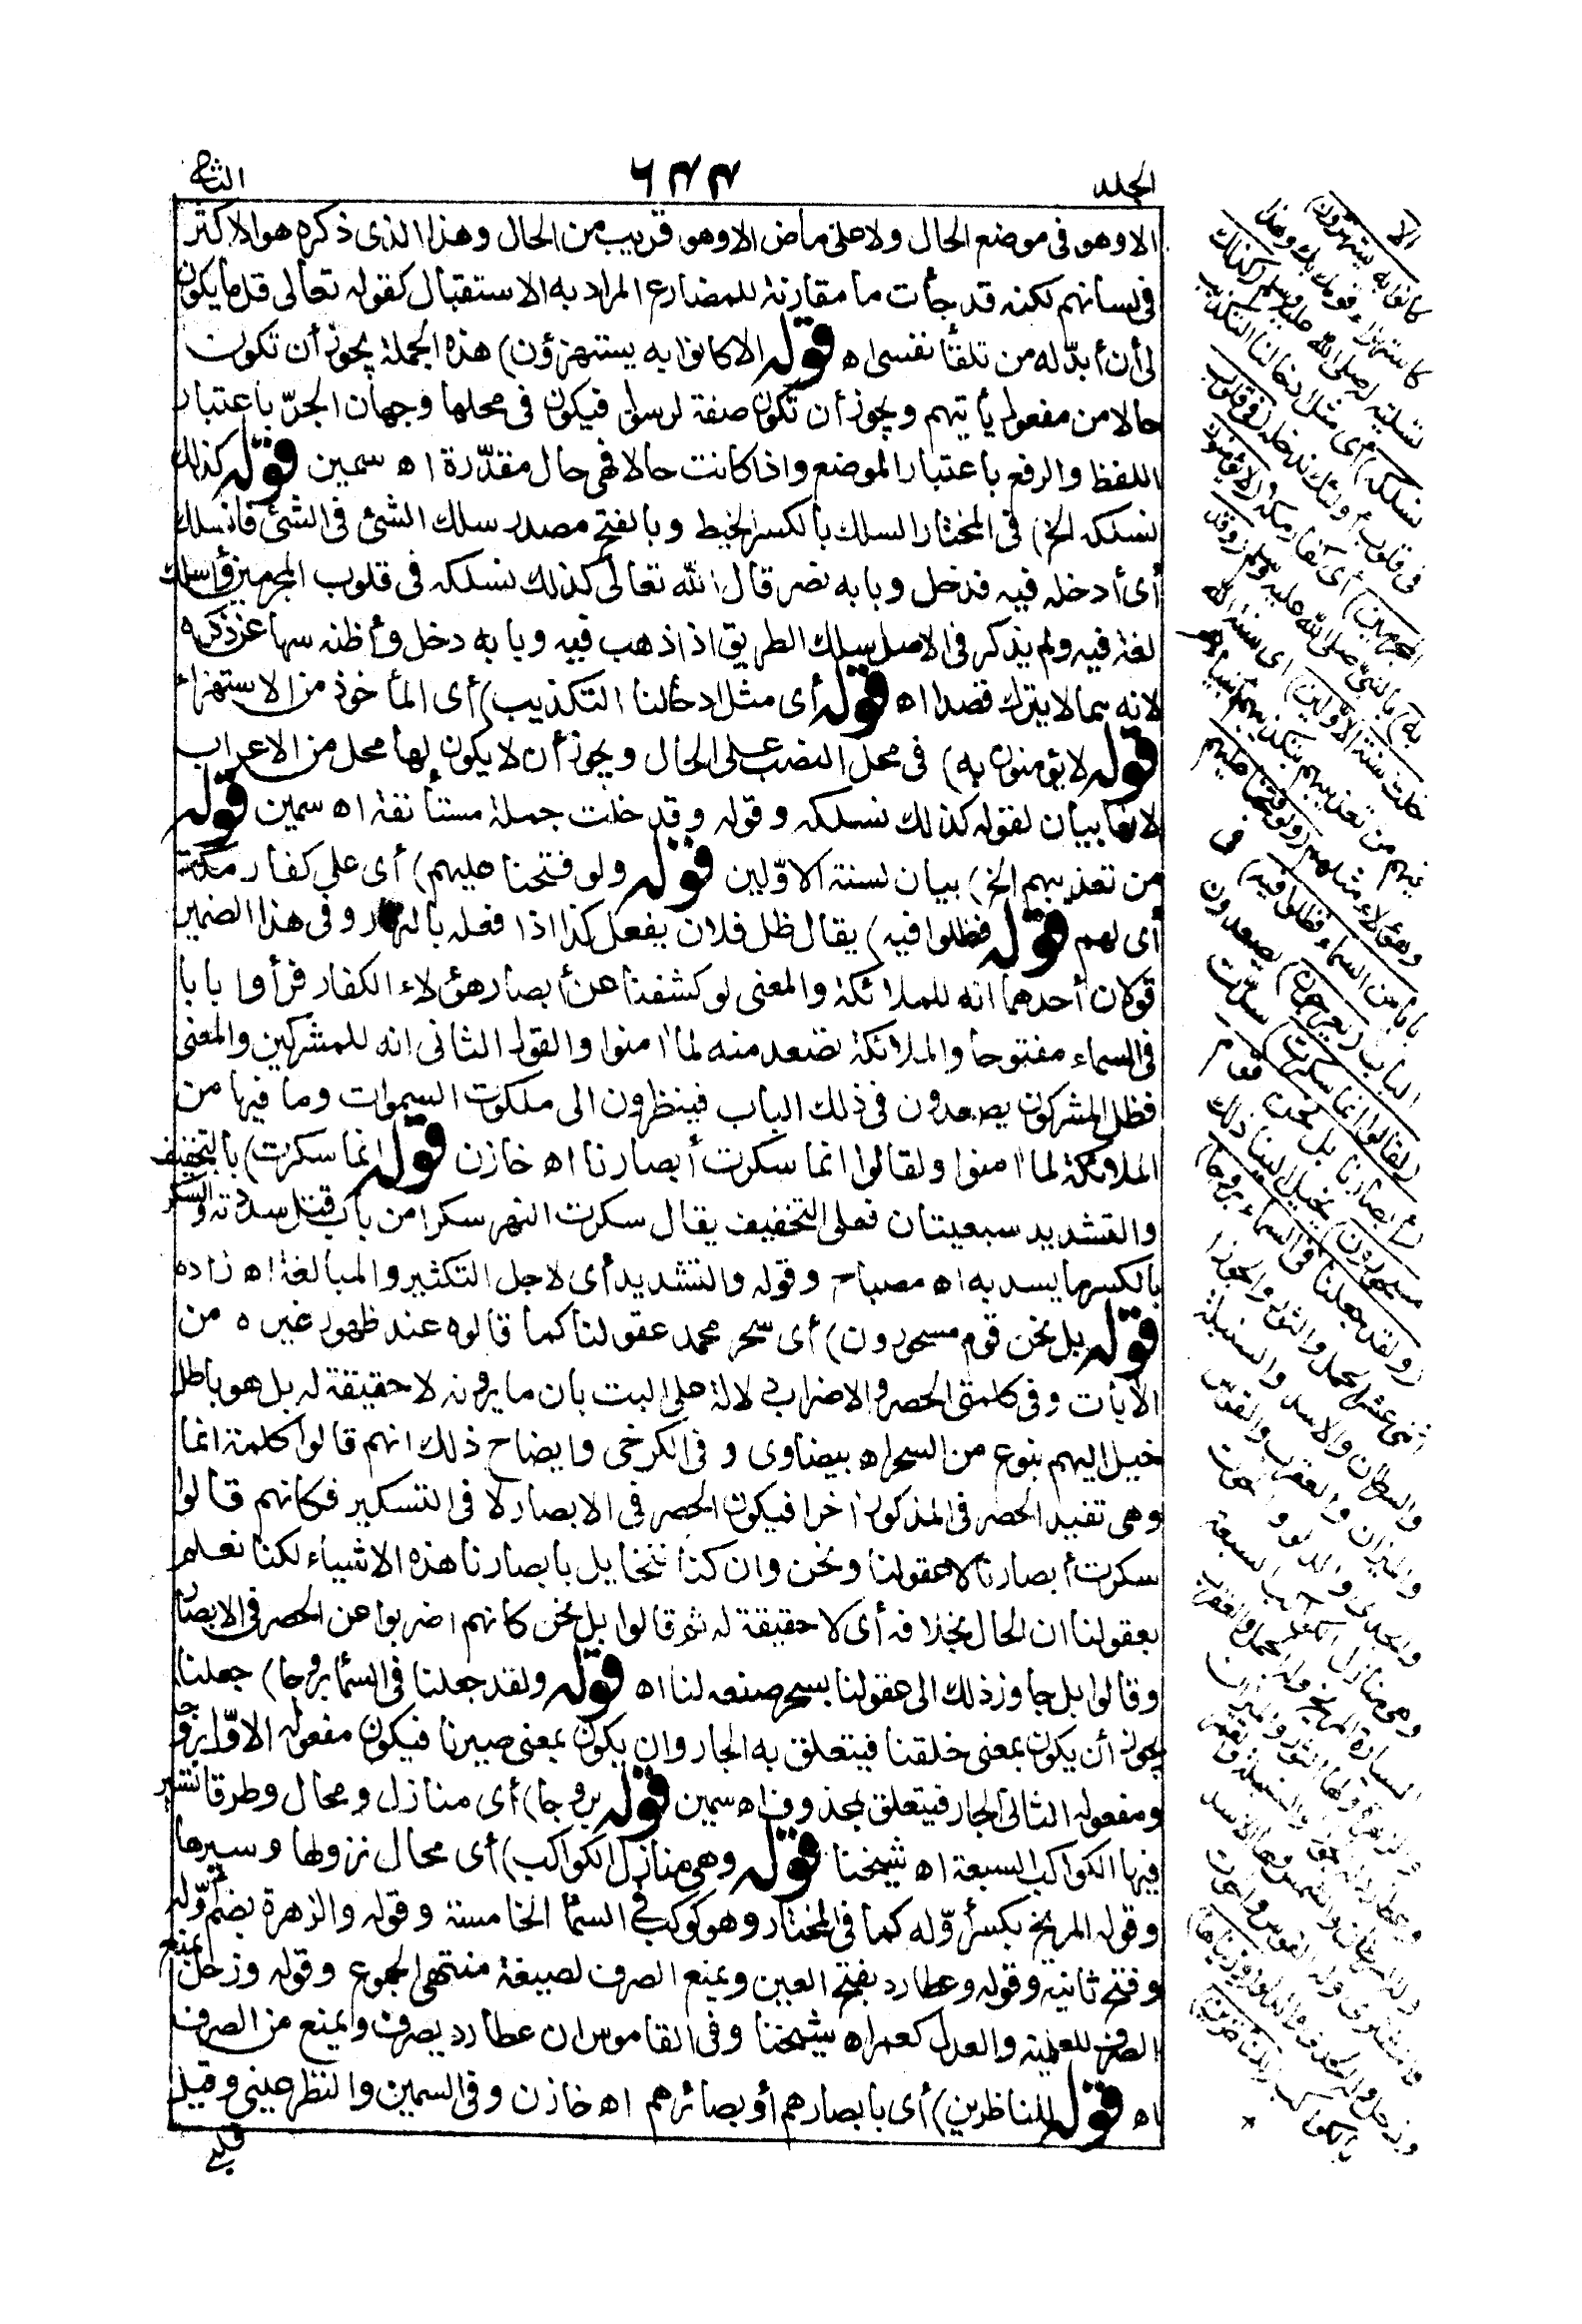 الجلد
٦٣٣
الثانى
الا وهو فى موضع الحال ولا على ماض الا وهو قريب من الحال وهذا الذى ذكره هو الاكثر
فى لسانهم لكنه قد جأت ما مقارنة للمضارع المراد به الاستقبال كقوله تعالى قل ما يكون
لى أن أبدّله من تلقأ نفسى اه قوله الا كانوا به يستهزؤن) هذه الجملة يجوز أن تكون
حالا من مفعول يأتيهم ويجوز أن تكون صفة لرسول فيكون فى محلها وجهان الجرّ باعتبار
اللفظ والرفع باعتبار الموضع واذا كانت حالا فهى حال مقدّرة اه سمين قوله كذلك
نسلكه الخ) فى المختار السلك بالكسر الخيط وبالفتح مصدر سلك الشئ فى الشئ فانسلك
أى أدخله فيه فدخل وبابه نصر قال الله تعالى كذلك نسلكه فى قلوب المجرمين وأسلك
لغة فيه ولم يذكر فى الاصل سلك الطريق اذا ذهب فيه وبابه دخل وأظنه سها عن ذكره
لانه مما لا يترك قصدا اه قوله أى مثل ادخالنا التكذيب) أى المأخوذ من الاستهزاء
قوله لا يؤمنون به) فى محل النصب على الحال ويجوز أن لا يكون لها محل من الاعراب
لانها بيان لقوله كذلك نسلكه وقوله وقد خلت جملة مستأنفة اه سمين قوله
من تعذيبهم الخ) بيان لسنة الاوّلين قوله ولو فتحنا عليهم) أى على كفار مكة
أى لهم قوله فظلوا فيه) يقال ظل فلان يفعل كذا اذا فعله بالنهار وفى هذا الضمير
قولان أحدهما انه للملائكة والمعنى لو كشفنا عن أبصار هؤلاء الكفار فرأوا بابا
فى السماء مفتوحا والملائكة تصعد منه لما امنوا والقول الثانى انه للمشركين والمعنى
فظل المشركون يصعدون فى ذلك الباب فينظرون الى ملكوت السموات وما فيها من
الملائكة لما امنوا ولقالوا انما سكرت أبصارنا اه خازن قوله انما سكرت) بالتخفيف
والتشديد سبعيتان فعلى التخفيف يقال سكرت النهر سكرا من باب قتل سددته والسكر
بالكسر ما يسد به اه مصباح وقوله والتشديد أى لاجل التكثير والمبالغة اه زاده
قوله بل نحن قوم مسحورون) أى سحر محمد عقولنا كما قالوه عند ظهور غيره من
الآيات وفى كلمتى الحصر والاضراب دلالة على البت بان ما يرونه لا حقيقة له بل هو باطل
خيل اليهم بنوع من السحر اه بيضاوى وفى الكرخى وايضاح ذلك انهم قالوا كلمة انما
وهى تفيد الحصر فى المذكور اخرا فيكون الحصر فى الابصار لا فى التسكير فكانهم قالوا
سكرت أبصارنا لا عقولنا ونحن وان كنا نتخايل بابصارنا هذه الاشياء لكنا نعلم
بعقولنا ان الحال بخلافه أى لا حقيقة له ثم قالوا بل نحن كانهم اضربوا عن الحصر فى الابصار
وقالوا بل جاوز ذلك الى عقولنا بسحر صنعه لنا اه قوله ولقد جعلنا فى السمأ بروجا) جعلنا
يجوز أن يكون بمعنى خلقنا فيتعلق به الجار وان يكون بمعنى صيرنا فيكون مفعوله الاوّل بروجا
ومفعوله الثانى الجار فيتعلق بمحذوف اه سمين قوله بروجا) أى منازل ومحال وطرقا تسير
فيها الكواكب السبعة اه شيخنا قوله وهى منازل الكواكب) أى محال نزولها وسيرها
وقوله المريخ بكسر أوّله كما فى المختار وهو كوكب فى السمأ الخامسة وقوله والزهرة بضم أوّله
وفتح ثانيه وقوله وعطارد بفتح العين ويمنع الصرف لصيغة منتهى الجموع وقوله وزحل يمنع
الصرف للعلمية والعدل كعمر اه شيخنا وفى القاموس ان عطارد يصرف ويمنع من الصرف
اه قوله للناظرين) أى بابصارهم أو بصائرهم اه خازن وفى السمين والنظر عينى وقيل
قلبى
الا
كانوا به يستهزؤن)
كاستهزاء قومك بك وهذا
تسلية له صلى الله عليه وسلم (كذلك
نسلكه) أى مثل ادخالنا التكذيب
فى قلوب أولئك ندخله (فى قلوب
المجرمين) أى كفار مكة (لا يؤمنون
به) بالنبى صلى الله عليه وسلم (وقد
خلت سنة الاوّلين) أى سنة الله
فيهم من تعذيبهم بتكذيبهم أنبياءهم
وهؤلاء مثلهم (ولو فتحنا عليهم
بابا من السماء فظلوا فيه) فى
الباب (يعرجون) يصعدون
(لقالوا انما سكرت) سدّت
(أبصارنا بل نحن قوم
مسحورون) يخيل الينا ذلك
(ولقد جعلنا فى السماء بروجا)
اثنى عشر الحمل والثور والجوزا
والسرطان والاسد والسنبلة
والميزان والعقرب والقوس
والجدى والدلو والحوت
وهى منازل الكواكب السبعة
السيارة المريخ وله الحمل والعقرب
والزهرة ولها الثور والميزان
وعطارد وله الجوزا والسنبلة والقمر
وله السرطان والشمس ولها الاسد
والمشترى وله القوس والحوت
وزحل وله الجدى والدلو (وزيناها)
بالكواكب (للناظرين)